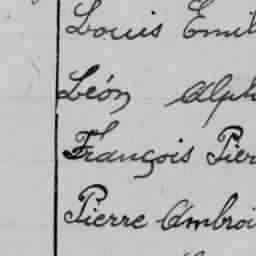 Louis Emil
Léon Alph
François Pier
Pierre Ambroi